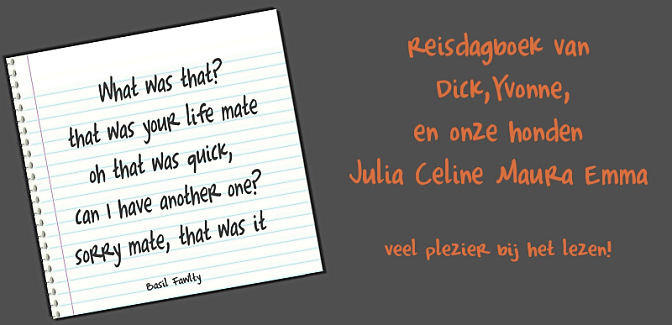 What was that?
that was your life mate
oh that was quick,
can I have another one?
sorry mate, that was it
Basil Fawlty
Reisdagboek van
Dick,Yvonne,
en onze honden
Julia Celine Maura Emma
veel plezier bij het lezen!